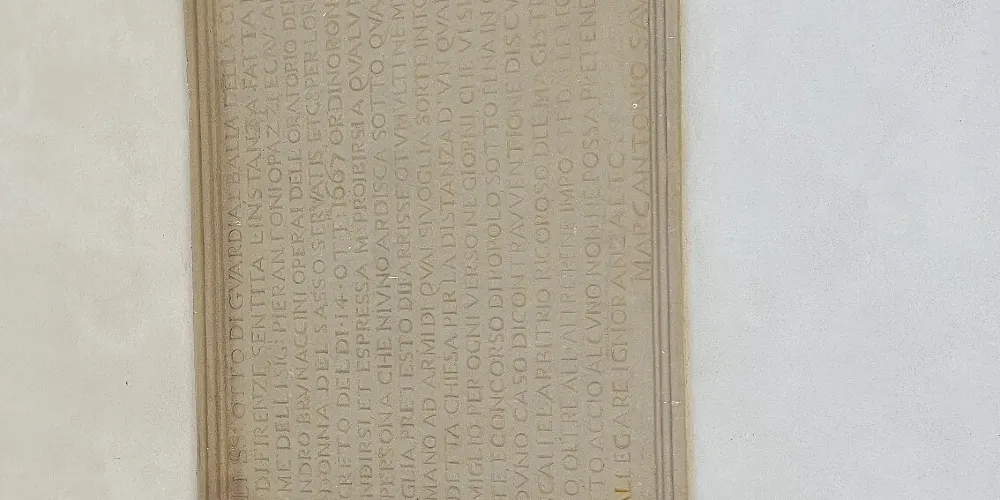 SS. OTTO DI GVARDIA E BALIA DELLA
DI FIRENZE SENTITA L'INSTANZA FATTA
OME DELLI SIG. PIER ANTONIO PAZZI E CAVA
NDRO BRVNACCINI OPERAI DELL'ORATORIO DE
DONNA DEL SASSO SERVATIS ET C. PER LOR
CRETO DEL DI 14 OTT. 1667 ORDINORON
NDIRSI ET ESPRESSA M. PROIBIRSI A QVALV
PERSONA CHE NIVNO ARDISCA SOTTO QVA
GLIA PRETESTO DI FAR RISSE O TVMVLTI NE M
MANO AD ARMI DI QVAL SI VOGLIA SORTE INTO
DETTA CHIESA PER LA DISTANZA D'VN QVAR
MIGLIO PER OGNI VERSO NE GIORNI CHE VI SI
TE CONCORSO DI POPOLO SOTTO PENA IN
OVNO CASO DI CONTRAVVENTIONE DI SCV
SCALI ELL ARBITRIO RIGOROSO DI LL MAGISTR
O OLTRE ALL'ALTRE PENE IMPO
TO ACCIO ALCVNO NON NE POSSA PRETEND
ALLEGARE IGNIORANZA ETC
MARCANTONIO